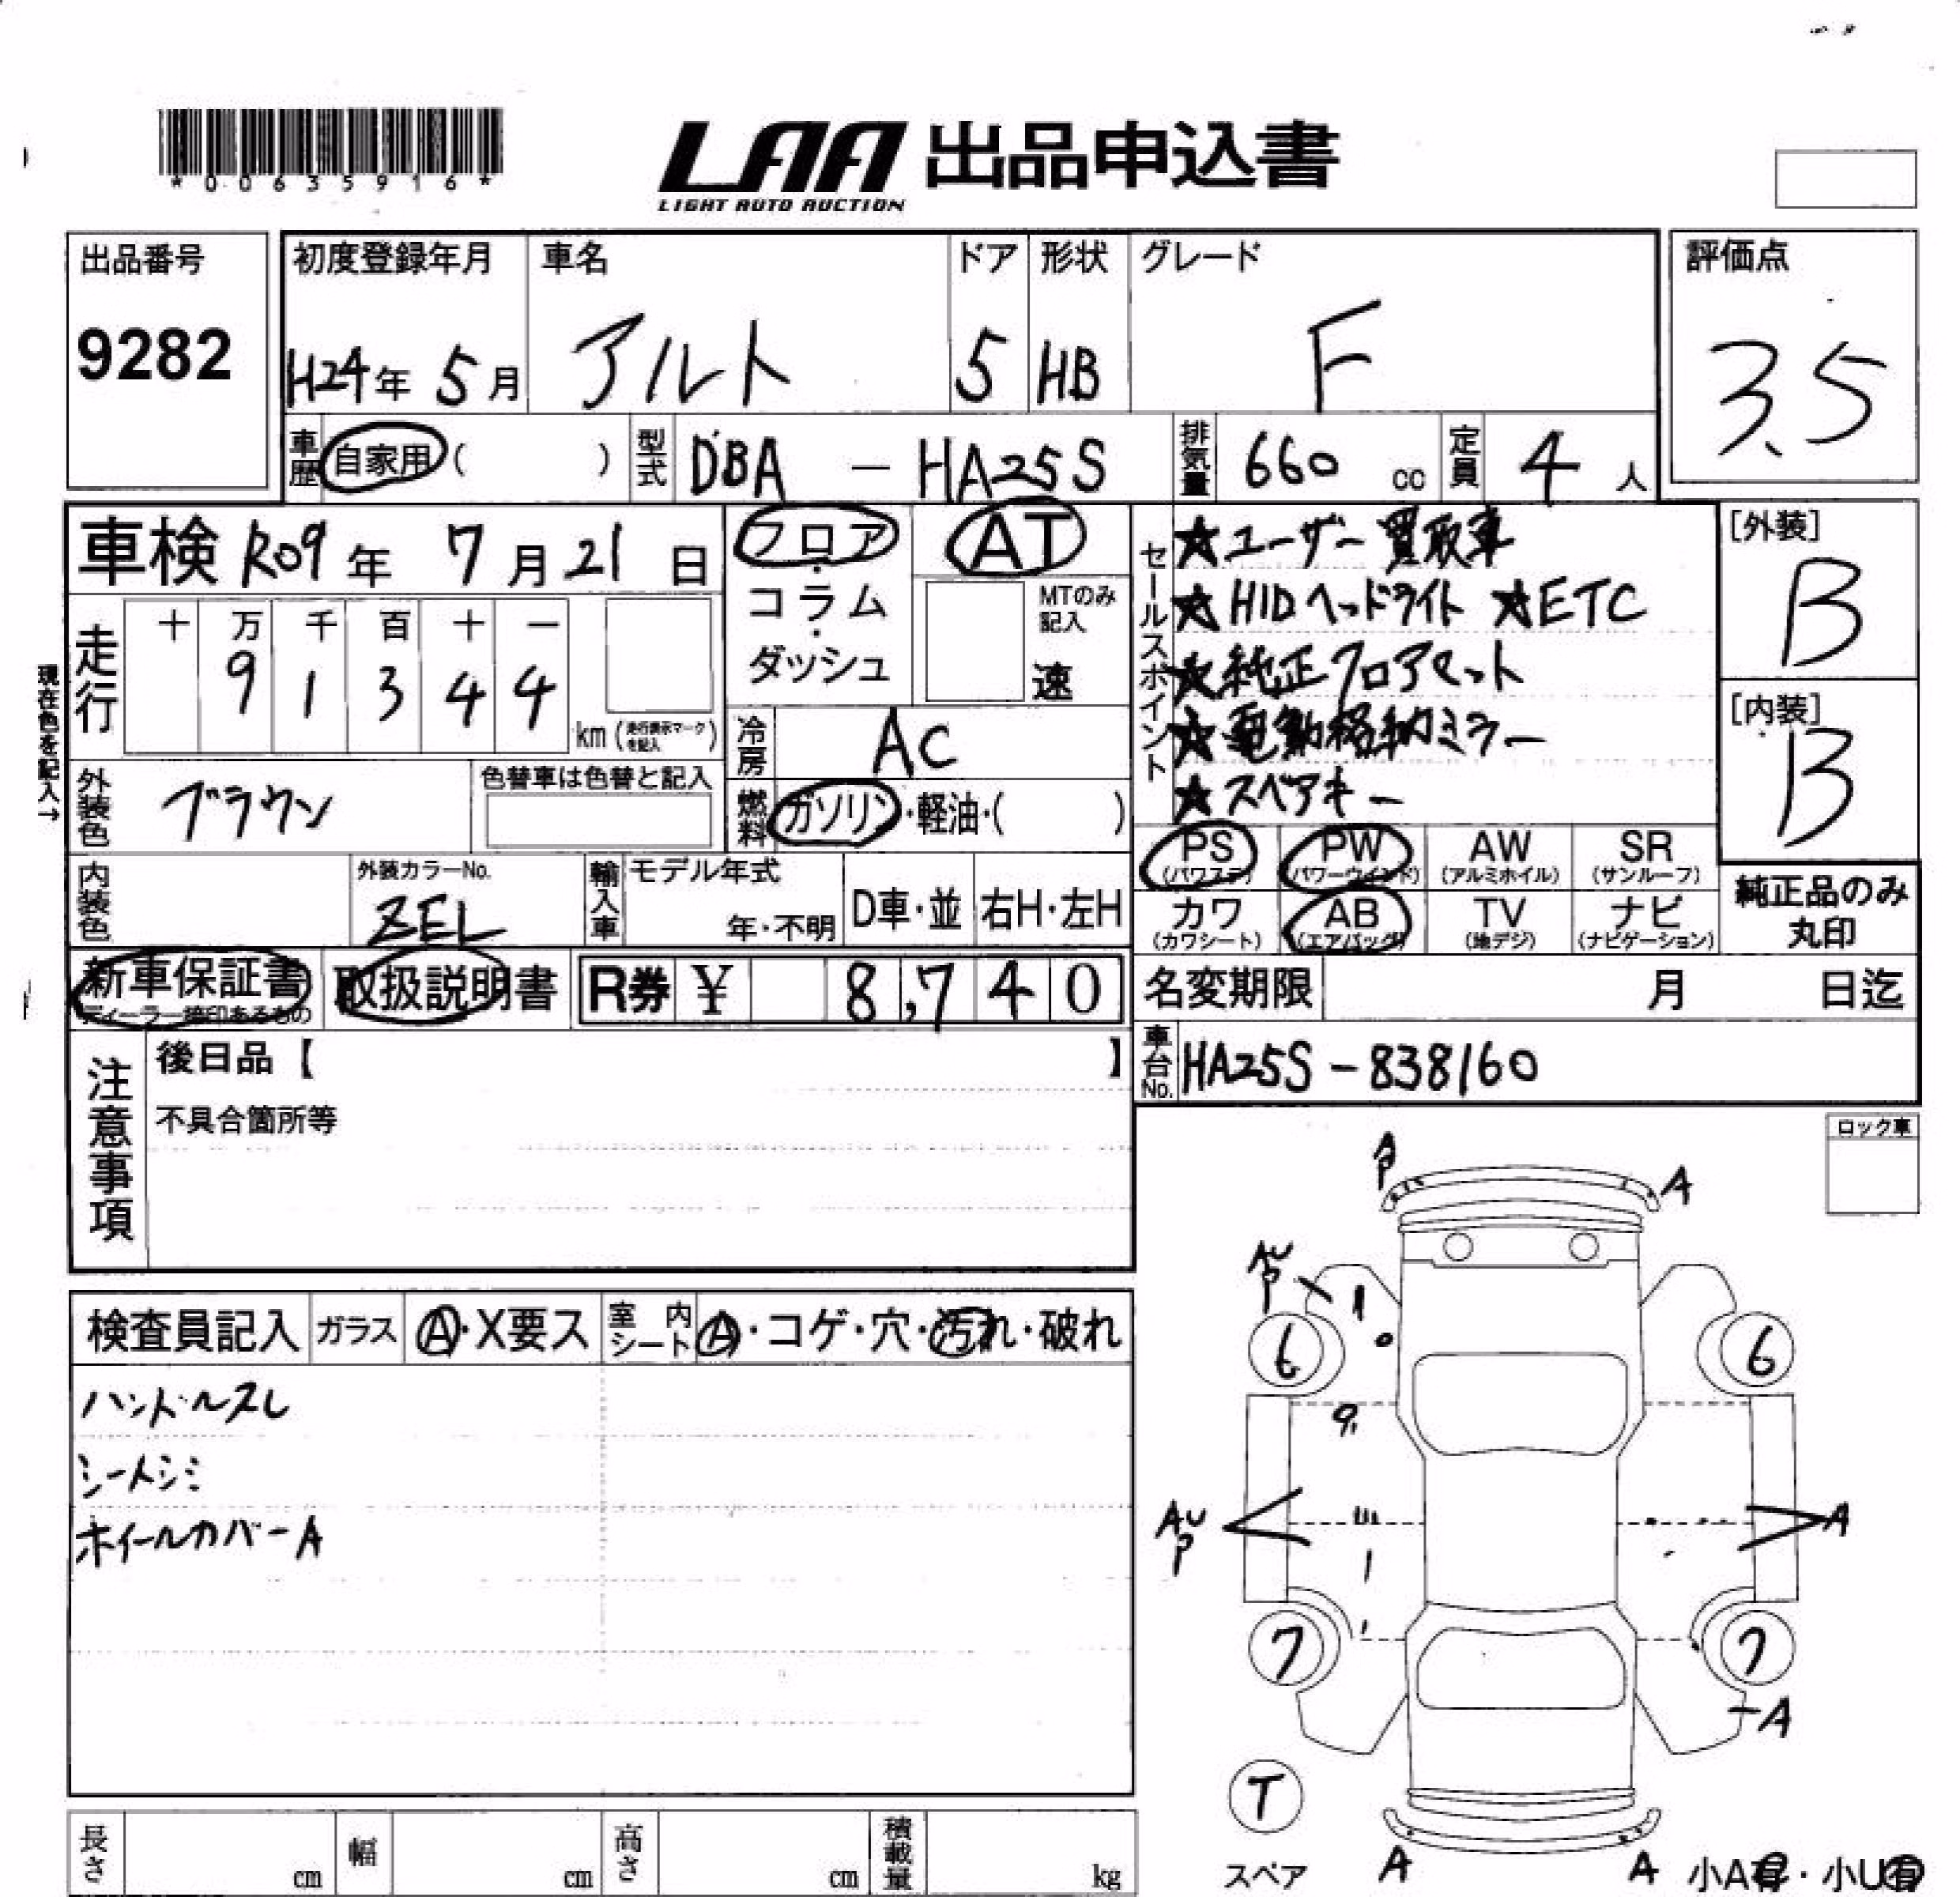 *00635916*
LAA 出品申込書
LIGHT AUTO AUCTION
出品番号
9282
初度登録年月 車名 ドア 形状 グレード
H24年 5月 アルト 5 HB F
評価点
3.5
車歴 自家用 ( ) 型式 DBA - HA25S 排気量 660 cc 定員 4 人
車検 R09年 7月21日
フロア・コラム・ダッシュ
AT
MTのみ記入
速
走行
十 万 千 百 十 一
9 1 3 4 4
km (走行表示マークを記入)
現在色を記入→
冷房 AC
外装色 ブラウン
色替車は色替と記入
燃料 ガソリン・軽油・( )
セールスポイント
★ユーザー買取車
★HIDヘッドライト ★ETC
★純正フロアマット
★電動格納ミラー
★スペアキー
[外装]
B
[内装]
B
PS (パワステ) PW (パワーウインド) AW (アルミホイル) SR (サンルーフ)
カワ (カワシート) AB (エアバッグ) TV (地デジ) ナビ (ナビゲーション)
純正品のみ
丸印
内装色
外装カラーNo.
ZEL
輸入車 モデル年式
年・不明
D車・並 右H・左H
新車保証書
ディーラー捺印あるもの
取扱説明書
R券 ¥ 8,740
名変期限 月 日迄
車台No. HA25S-838160
注意事項
後日品【 】
不具合箇所等
ロック車
検査員記入 ガラス A・X要ス 室内シート A・コゲ・穴・汚れ・破れ
ハンドルスレ
シートシミ
ホイールカバーA
A
P
A
AU
P
6
6
AU
P
A
7
7
A
T
スペア
A
A
小A有・小U有
長さ cm 幅 cm 高さ cm 積載量 kg